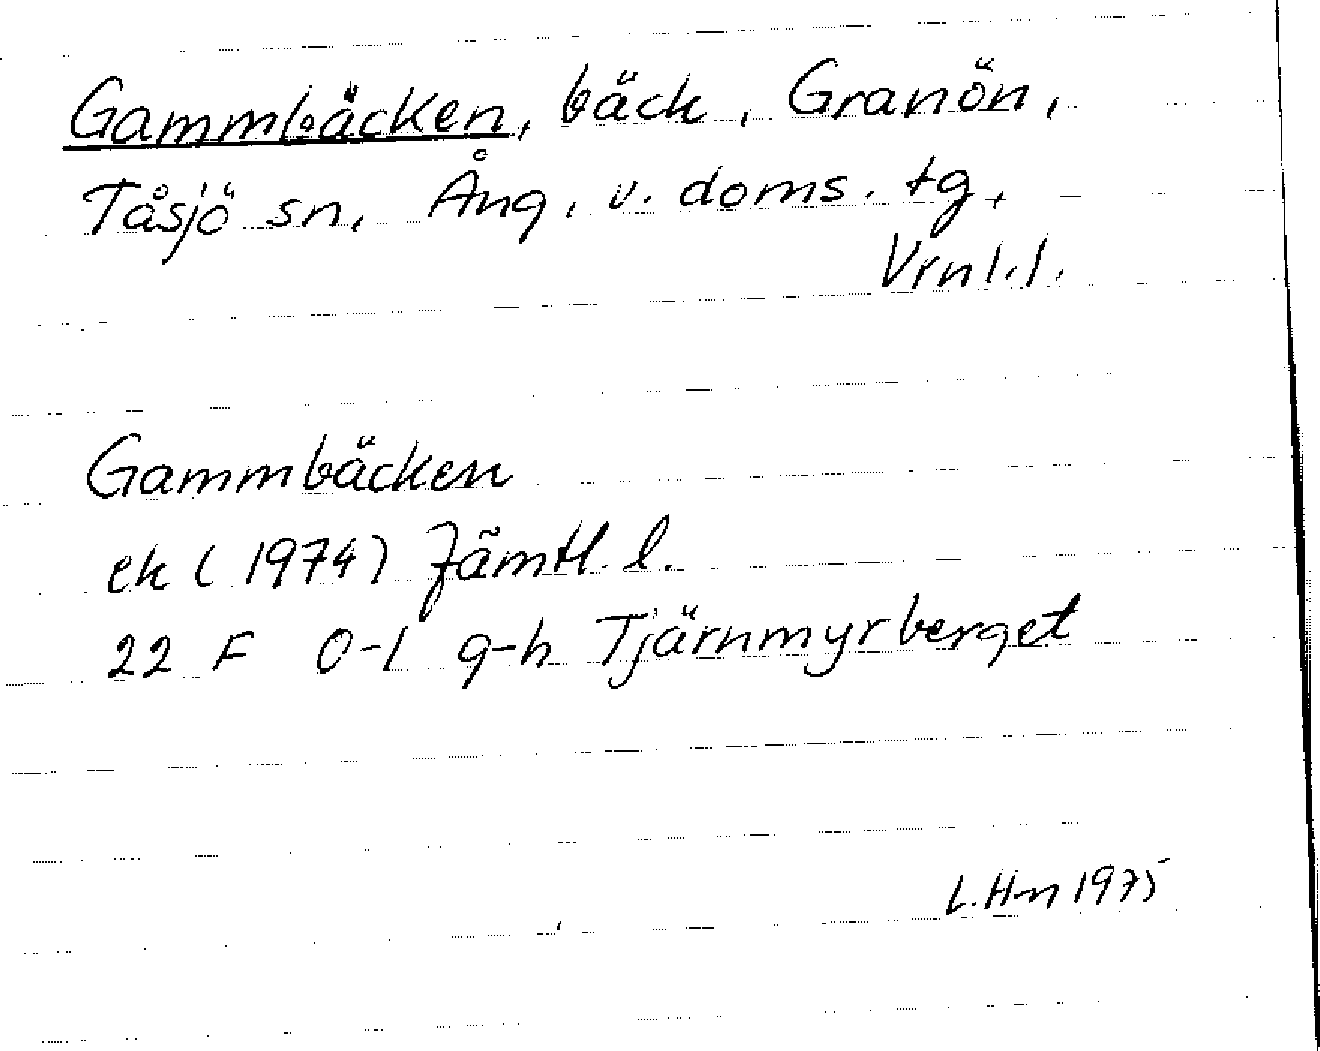 Gammbäcken, bäck, Granön,
Tåsjö sn, Ång. v. doms. tg,
Vrnl.l.
Gammbäcken
ek (1974) Jämtl. l.
22 F 0-1 g-h Tjärnmyrberget
L.Hm 1975